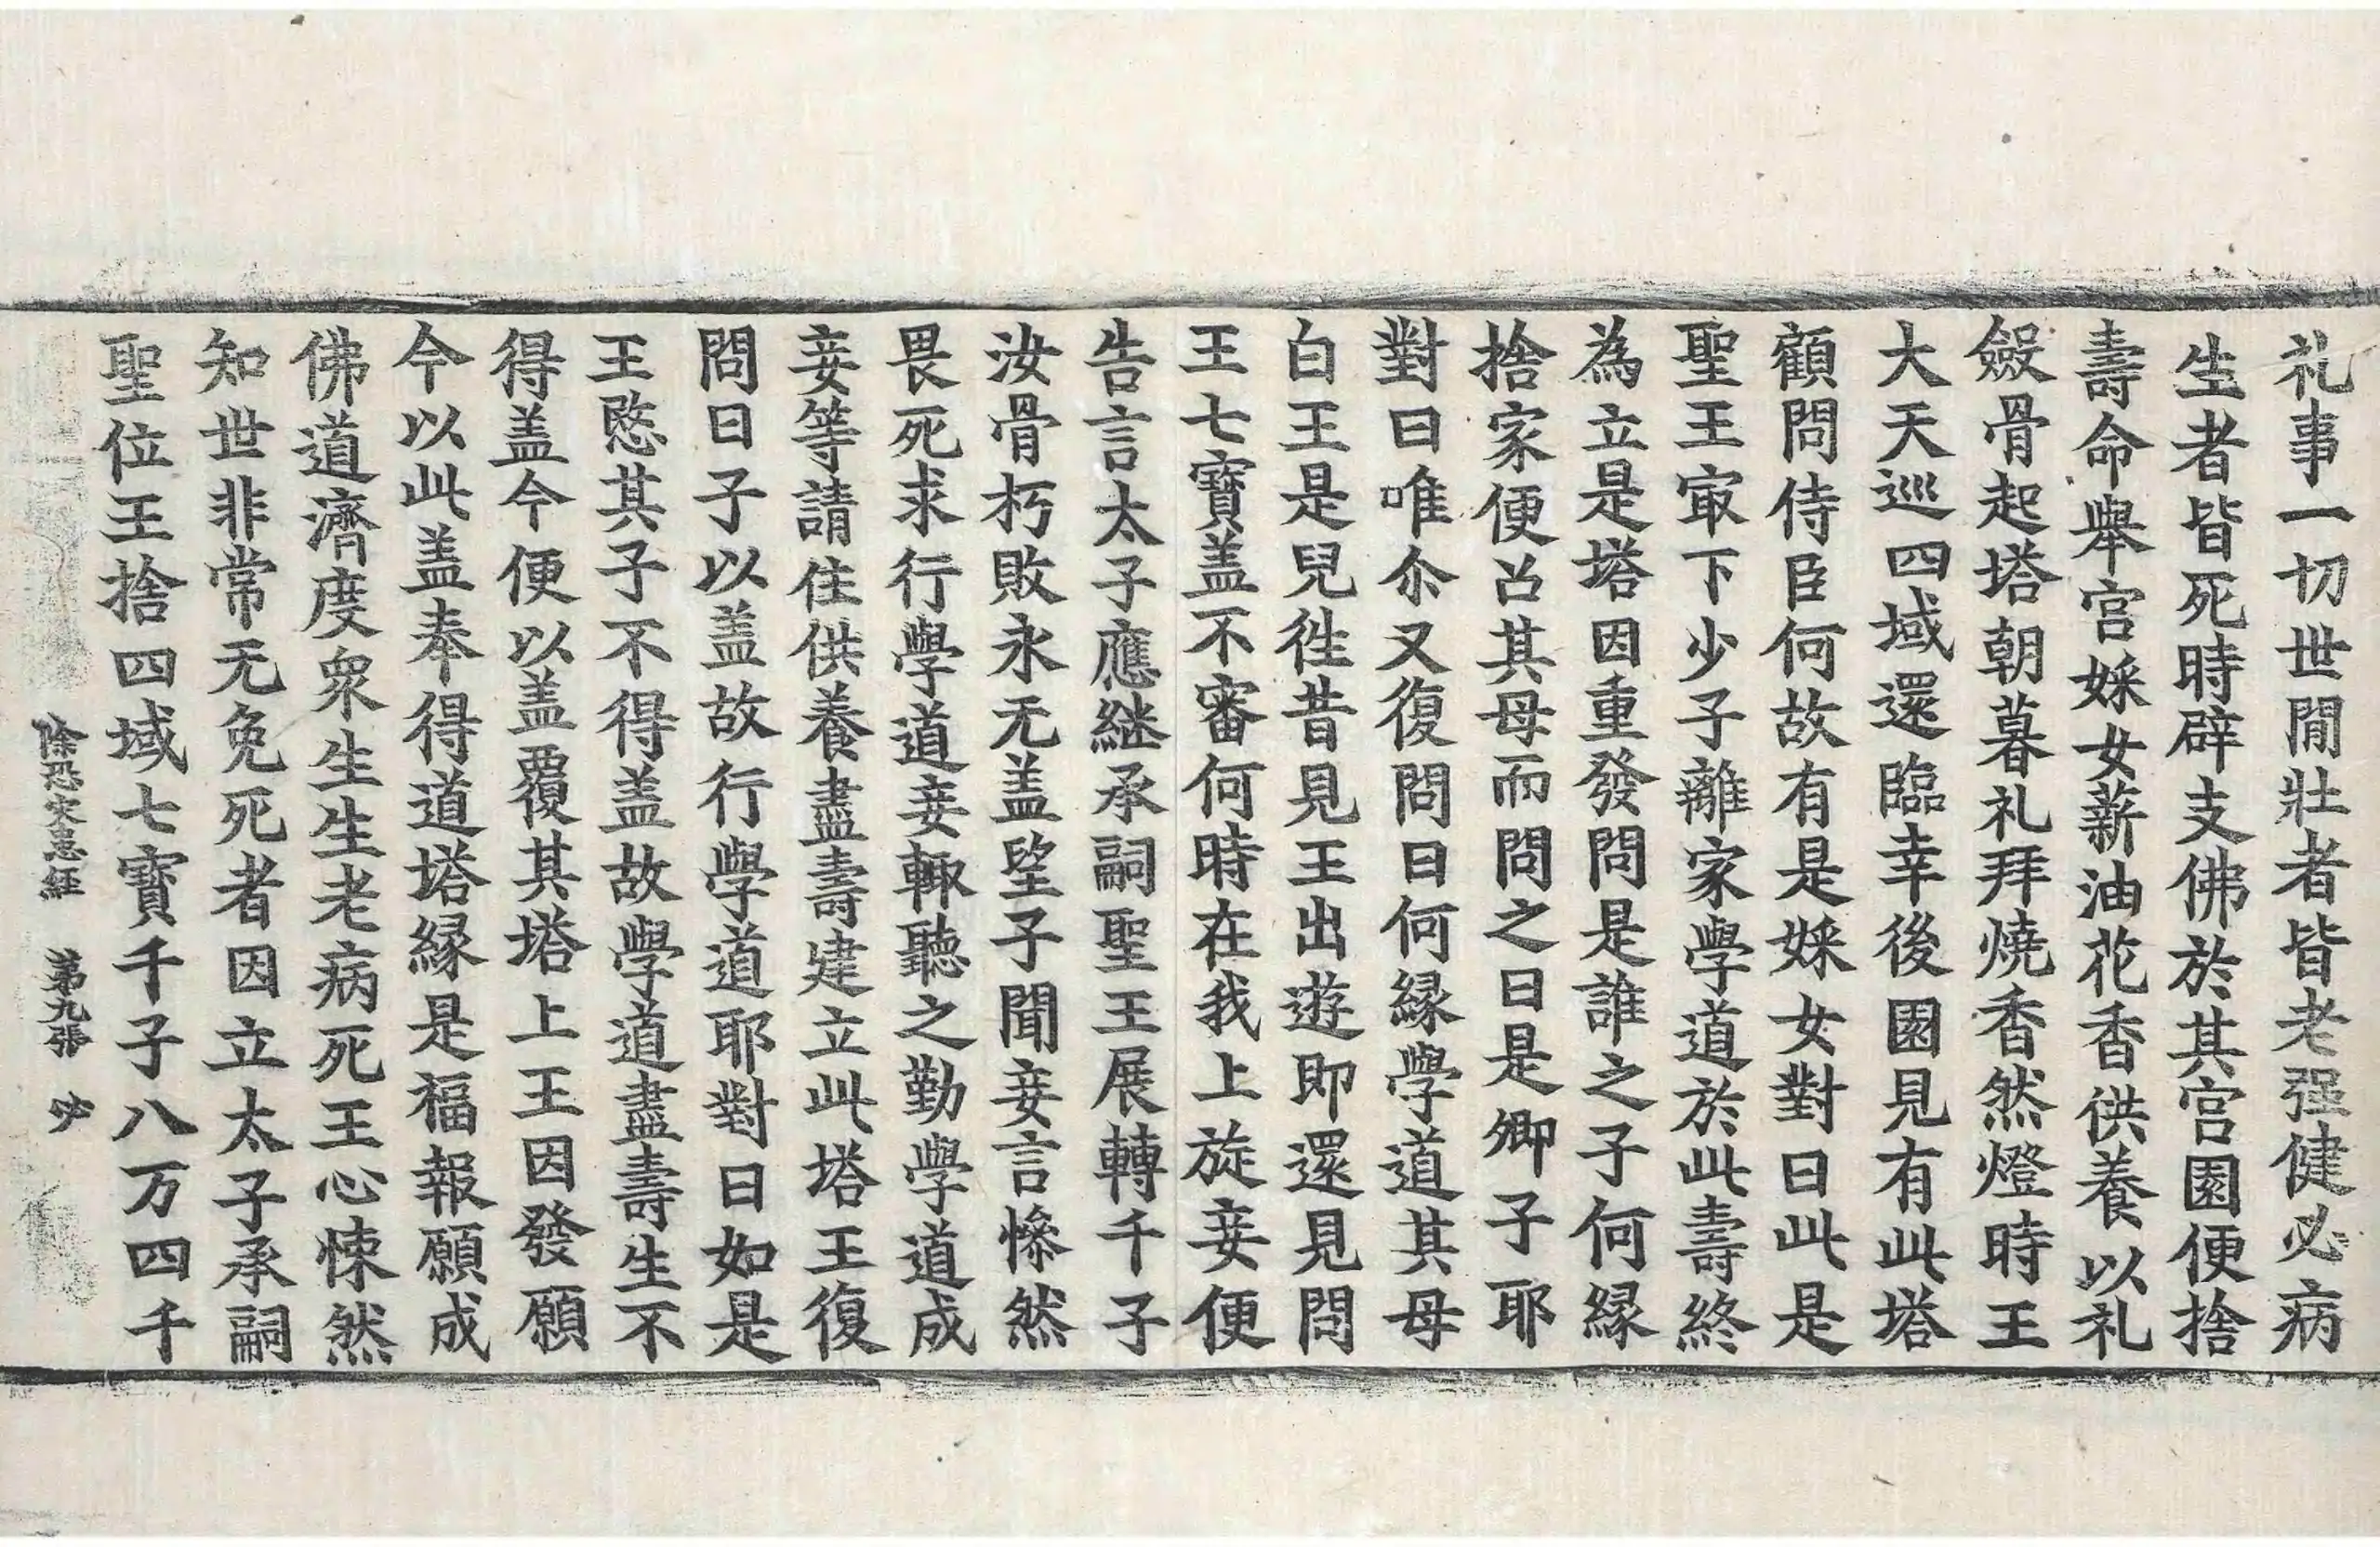 礼事一切世閒壯者皆老强健必病
生者皆死時辟支佛於其宫園便捨
壽命舉宫婇女薪油花香供養以礼
斂骨起塔朝暮礼拜燒香然燈時王
大天巡四域還臨幸後園見有此塔
顧問侍臣何故有是婇女對曰此是
聖王㝡下少子離家學道於此壽終
為立是塔因重發問是誰之子何縁
捨家便召其母而問之曰是卿子耶
對曰唯尒又復問曰何縁學道其母
白王是兒徃昔見王出遊即還見問
王七寶盖不審何時在我上旋妾便
告言太子應継承嗣聖王展轉千子
汝骨朽敗永无盖望子聞妾言慘然
畏死求行學道妾輙聽之勤學道成
妾等請住供養盡壽建立此塔王復
問曰子以盖故行學道耶對曰如是
王愍其子不得盖故學道盡壽生不
得盖今便以盖覆其塔上王因發願
今以此盖奉得道塔縁是福報願成
佛道濟度衆生生老病死王心悚然
知世非常无免死者因立太子承嗣
聖位王捨四域七寶千子八万四千
除恐灾患経　第九張